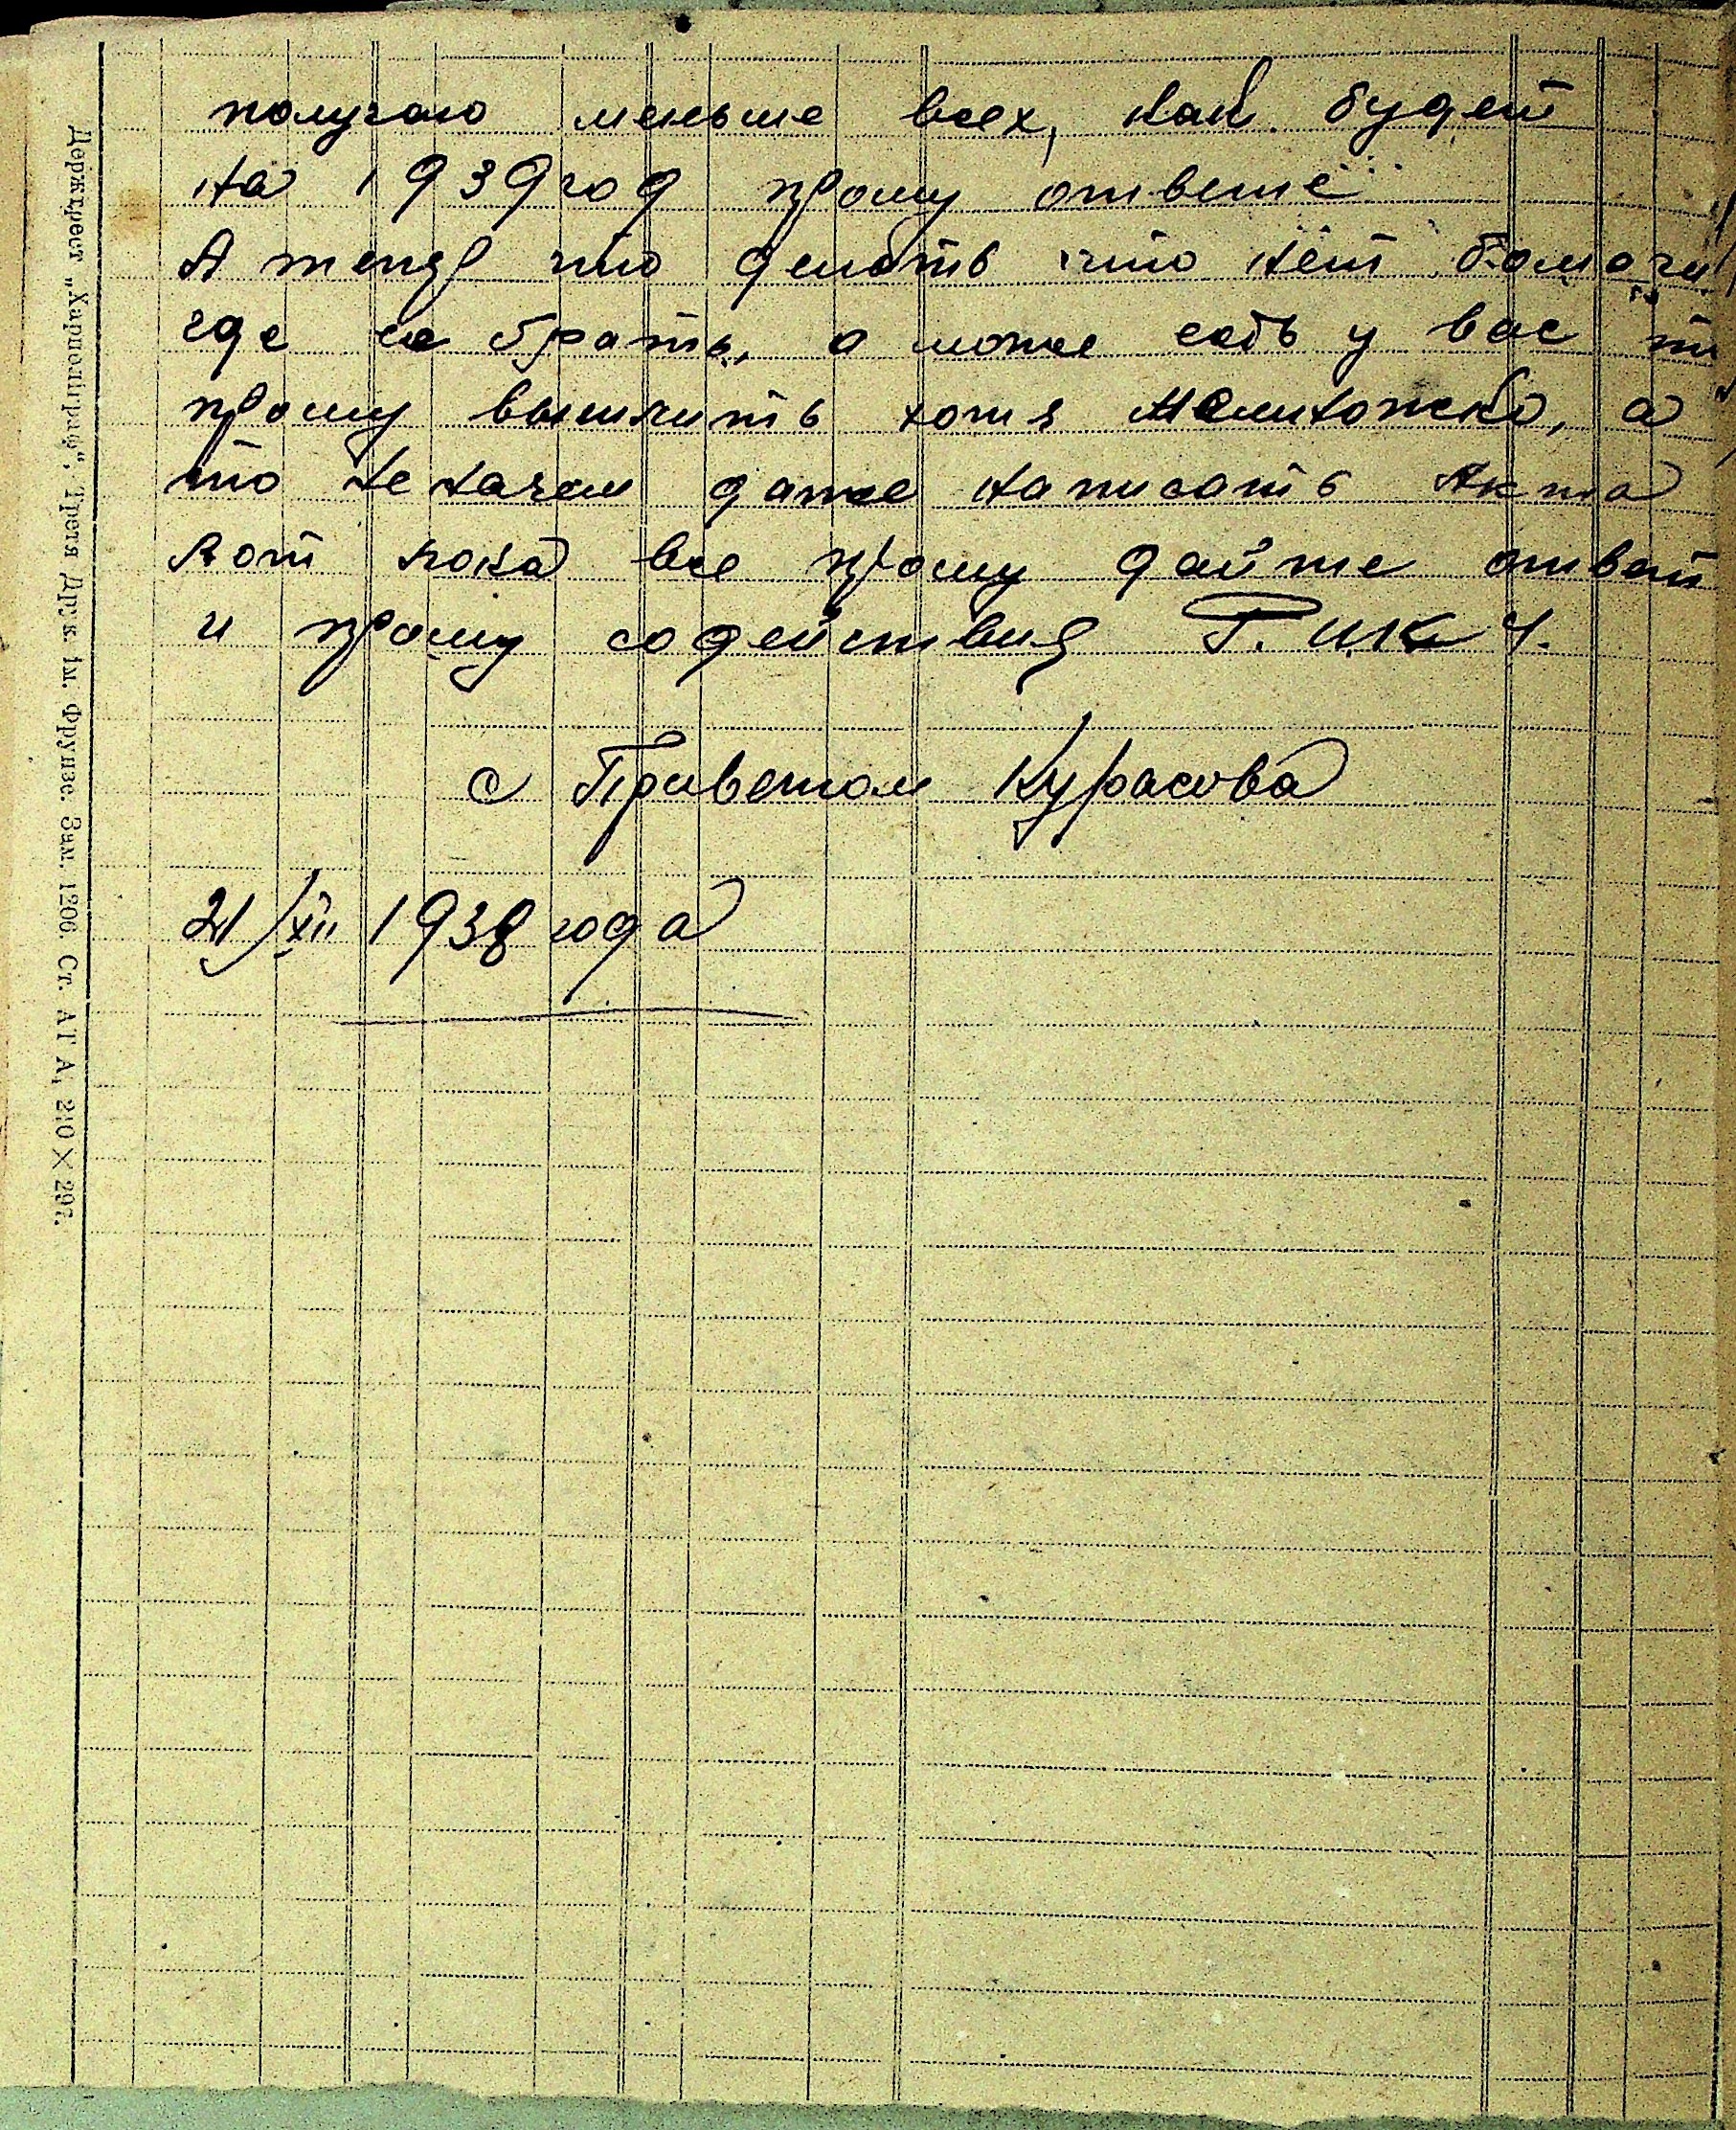 получаю меньше всех, как будет
на 1939 год прошу ответе
А тепер что делать что нет бомаги
где ее брать, а може есть у вас то
прошу выслить хотя немножко, а
то не начем даже написать Акта
Вот пока все прошу дайте ответ
и прошу содействия Р.И.К 4.
с Приветом Курасова
21/XII 1938 года
Держтрест „Харполіграф“, Третя Друк. ім. Фрунзе. Зам. 1206. Ст. А1 А, 210×297.